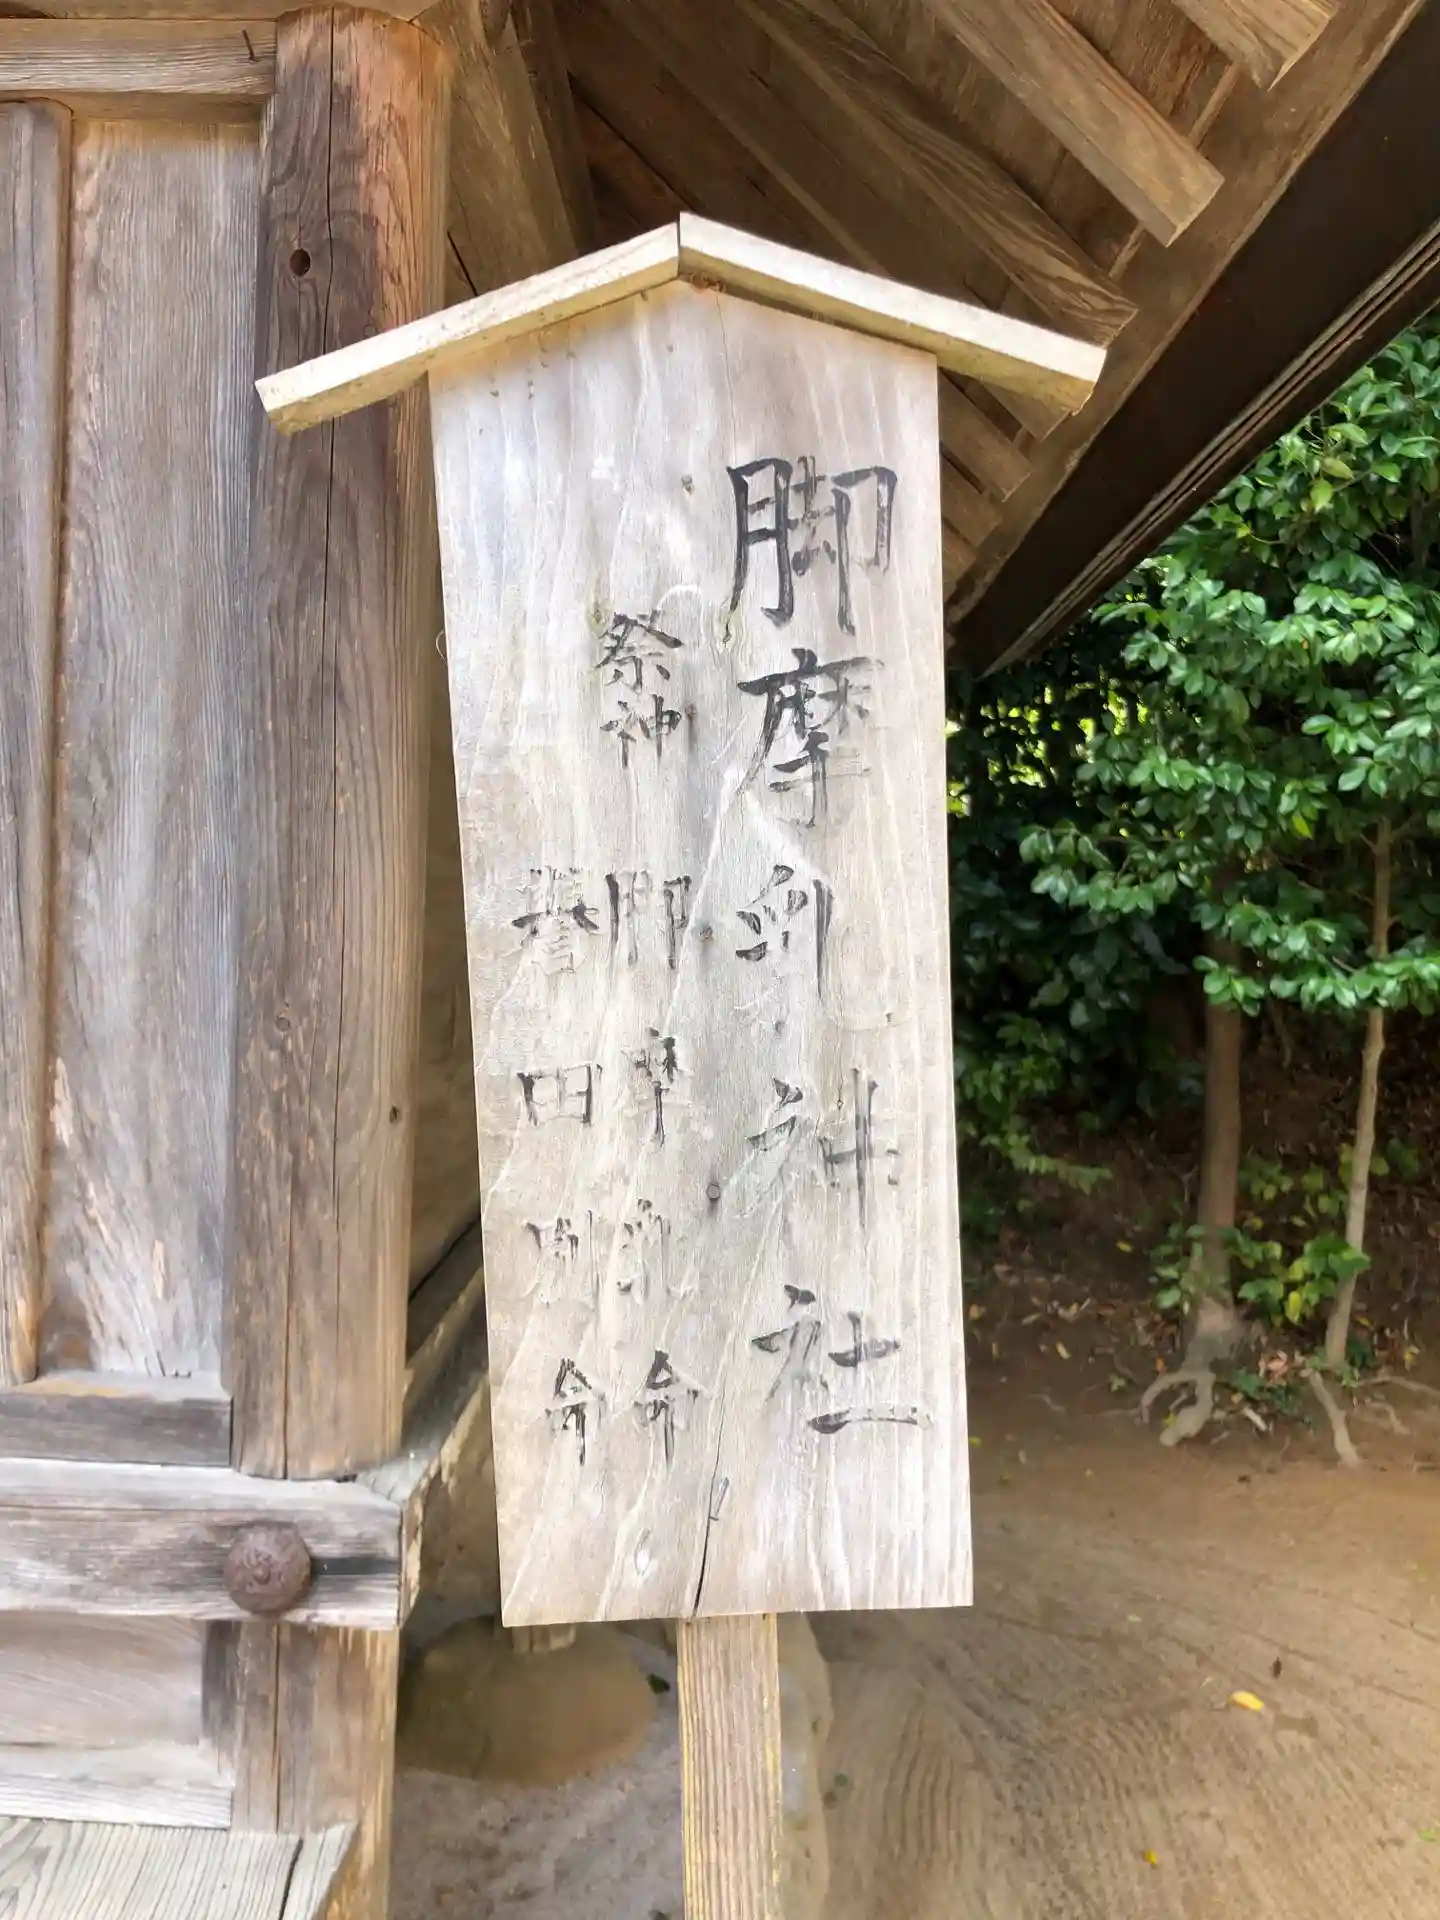 脚摩乳神社
祭神
脚摩乳命
誉田別命